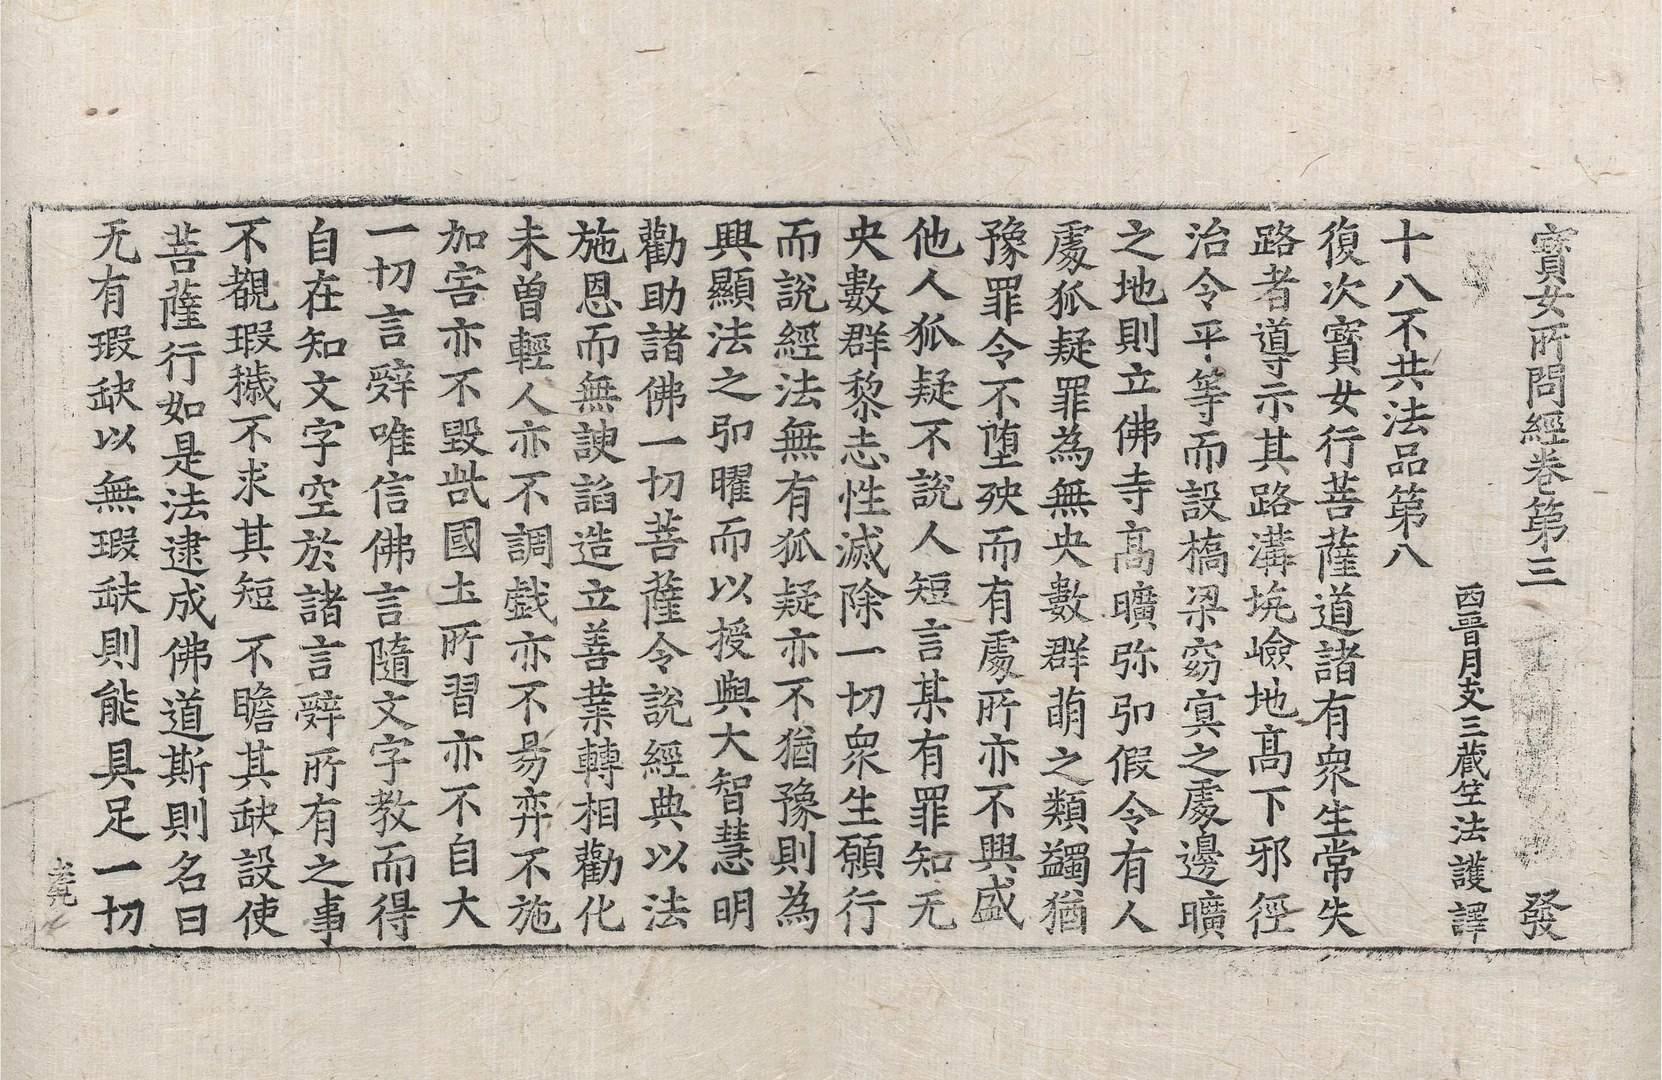 寳女所問經卷第三 發
西晉月支三藏竺法護譯
十八不共法品第八
復次寳女行菩薩道諸有衆生常失
路者導示其路溝坑嶮地髙下邪徑
治令平等而設橋梁窈㝠之處邊曠
之地則立佛寺髙曠弥卬假令有人
處狐疑罪為無央數群萌之類蠲猶
豫罪令不堕殃而有處所亦不興盛
他人狐疑不說人短言某有罪知无
央數群黎志性滅除一切衆生願行
而說經法無有狐疑亦不猶豫則為
興顯法之卬曜而以授與大智慧明
勸助諸佛一切菩薩令說經典以法
施恩而無諛諂造立善業轉相勸化
未曽輕人亦不調戲亦不昜弈不施
加害亦不毀呰國土所習亦不自大
一切言辤唯信佛言隨文字教而得
自在知文字空於諸言辤所有之事
不覩瑕穢不求其短不瞻其缺設使
菩薩行如是法逮成佛道斯則名曰
无有瑕缺以無瑕缺則能具足一切